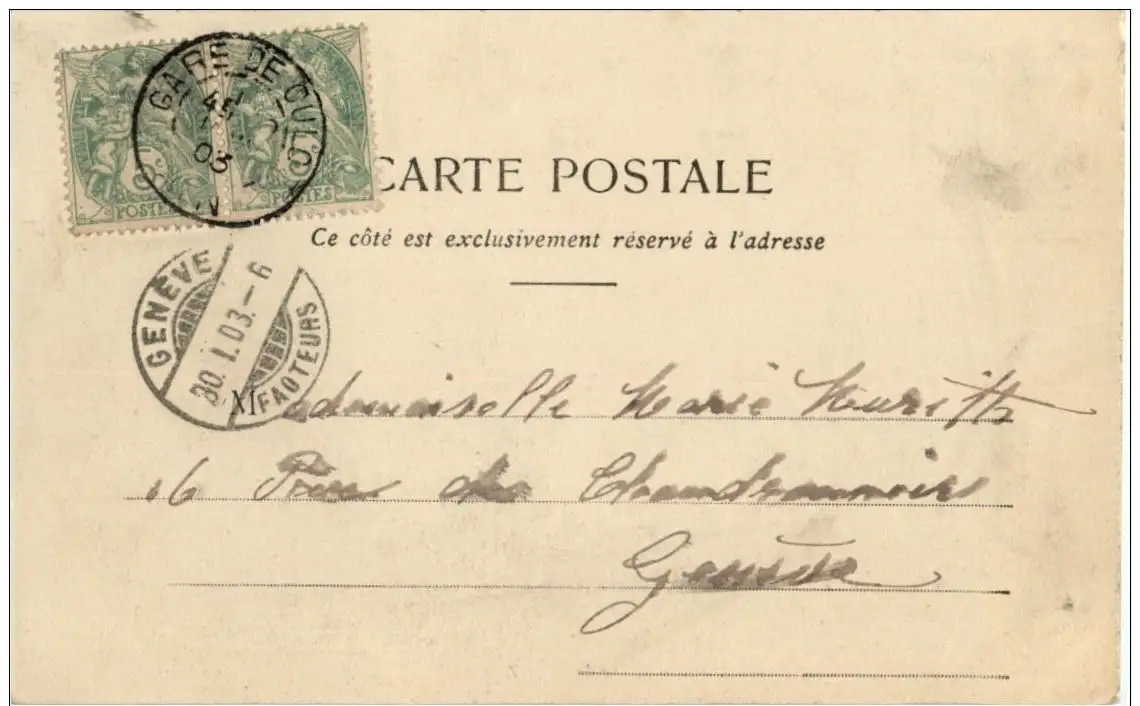 GARE DE CULOZ
03
POSTES POSTES
CARTE POSTALE
Ce côté est exclusivement réservé à l'adresse
GENÈVE
30.I.03.-6
FACTEURS
Mademoiselle Marie
16 Rue des
Genève